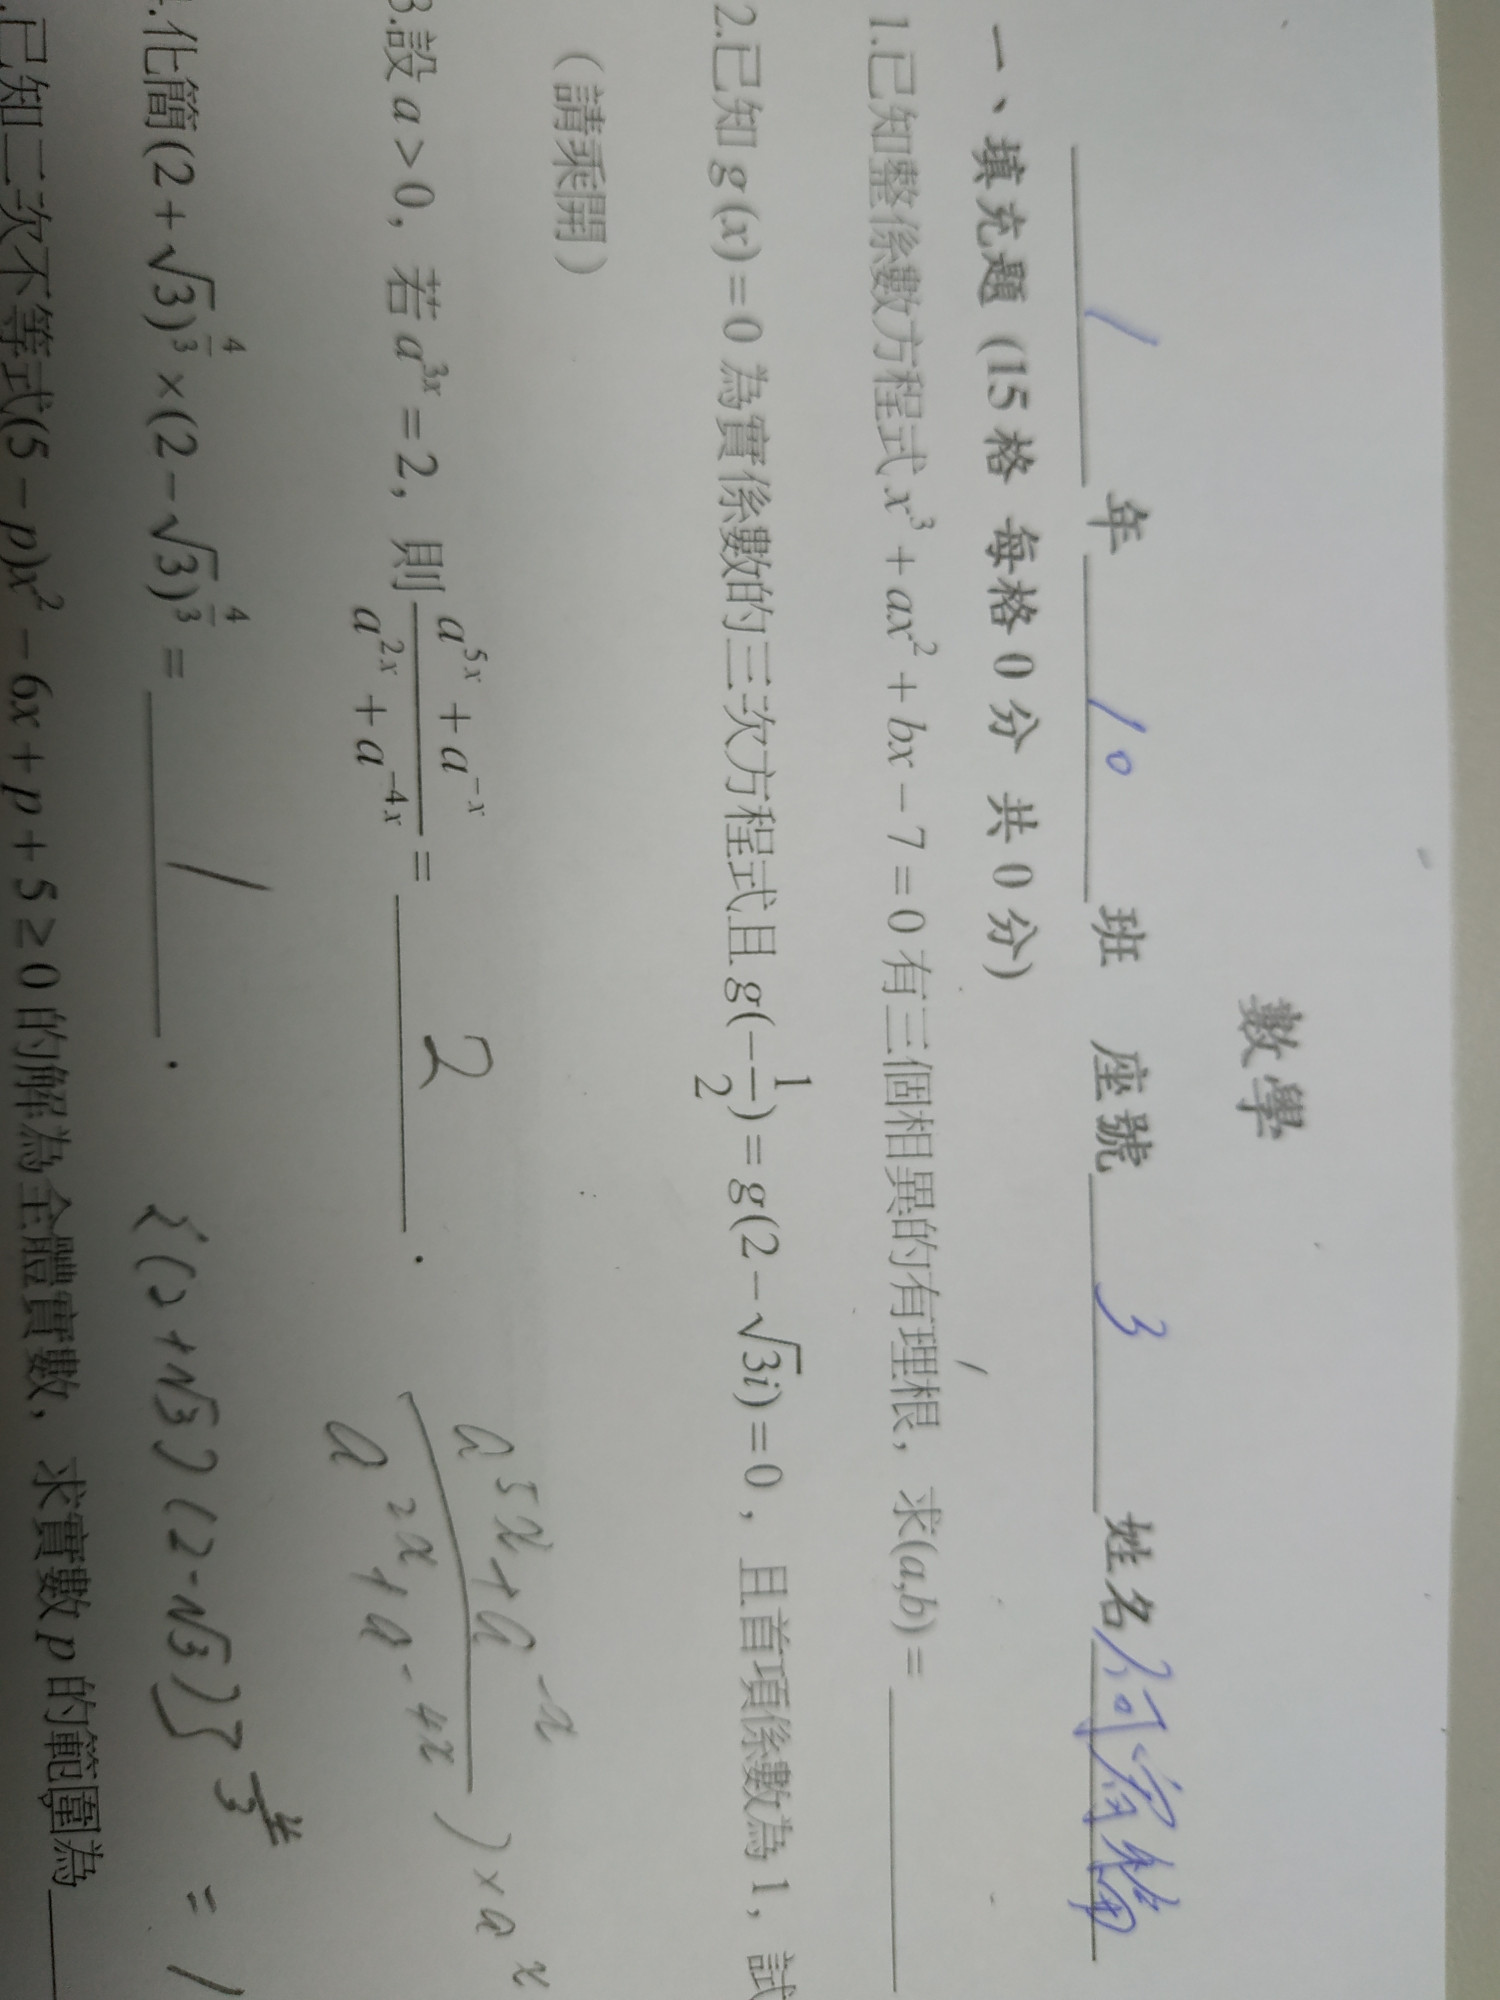 數學
1 年 10 班 座號 3 姓名
一、填充題 (15 格 每格 0 分 共 0 分)
1.已知整係數方程式 x³ + ax² + bx − 7 = 0 有三個相異的有理根，求(a,b) = ______
2.已知 g(x) = 0 為實係數的三次方程式且 g(−1/2) = g(2 − √3i) = 0，且首項係數為 1，試
（請乘開）
3.設 a > 0，若 a^{3x} = 2，則 (a^{5x} + a^{−x})/(a^{2x} + a^{−4x}) = 2 .
(a^{5x} + a^{−x})/(a^{2x} + a^{−4x}) ) × a^x
.化簡(2 + √3)^{4/3} × (2 − √3)^{4/3} = 1 .
{(2 + √3)(2 − √3)}^{4/3} = 1
.已知二次不等式(5 − p)x² − 6x + p + 5 ≥ 0 的解為全體實數，求實數 p 的範圍為